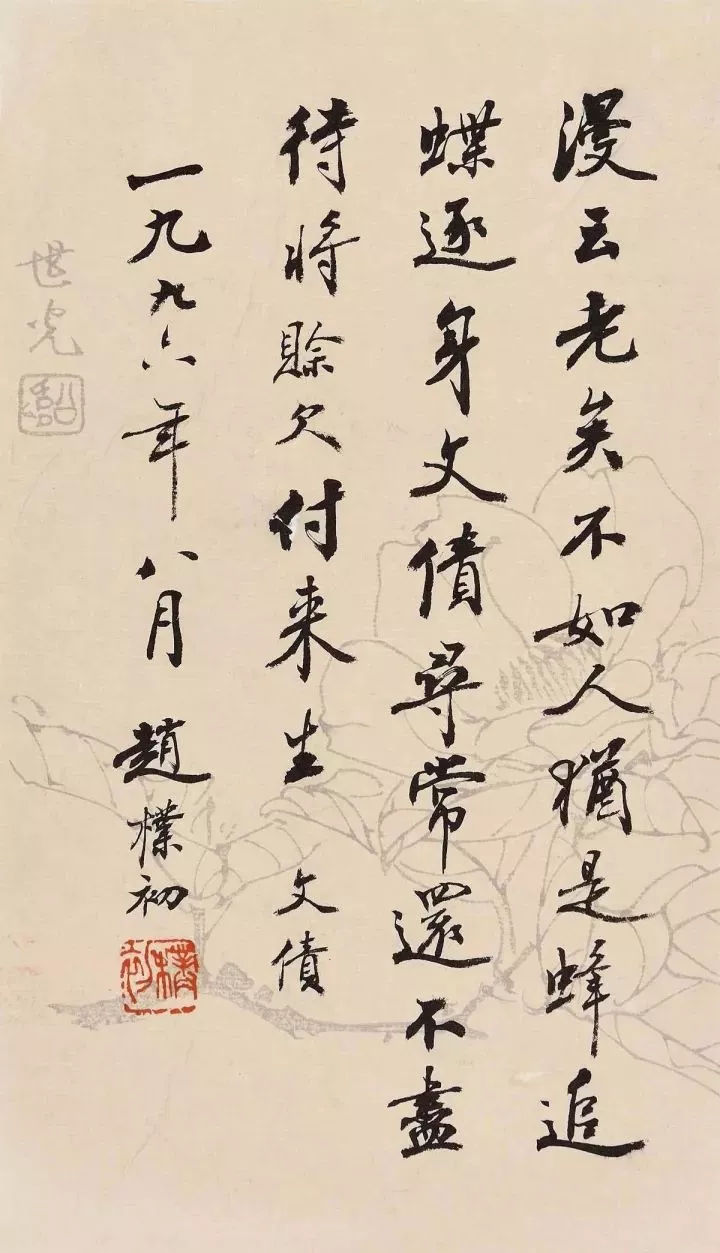 漫云老矣不如人猶是蜂追
蝶逐身文債尋常還不盡
待將賒欠付来生 文債
一九九六年八月 趙樸初
樸初
世光